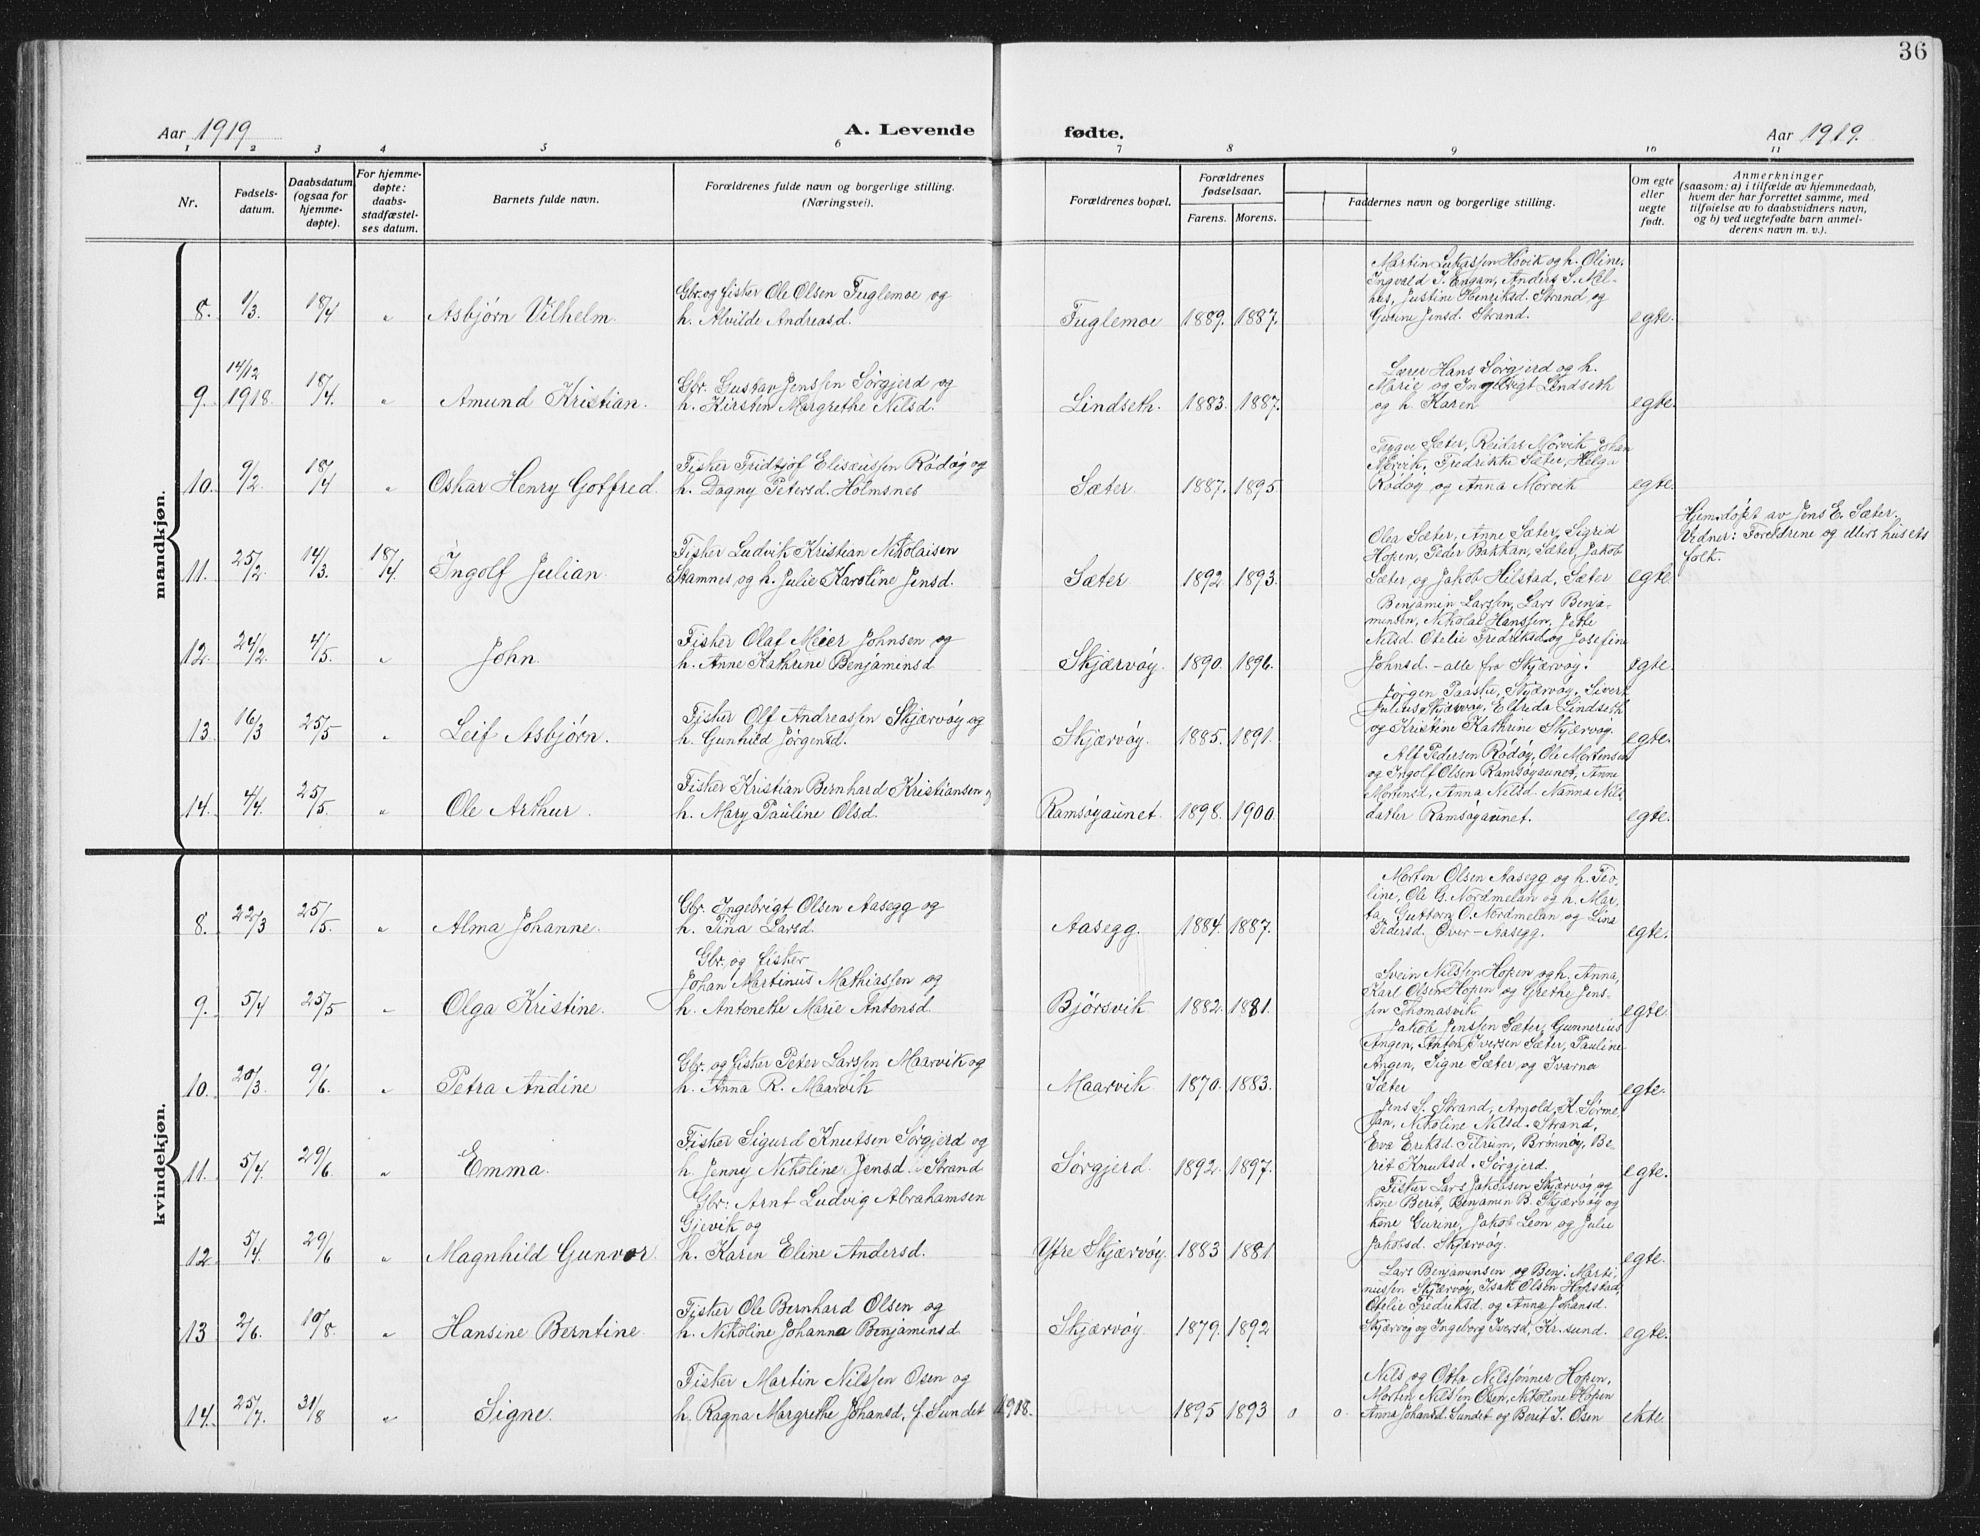 36
Aar 1919
A. Levende fødte.
Aar 1919.
1 2 3 4 5 6 7 8 9 10 11
Nr.
Fødsels-
datum.
Daabsdatum
(ogsaa for
hjemme-
døpte).
For hjemme-
døpte:
daabs-
stadfæstel-
ses datum.
Barnets fulde navn.
Forældrenes fulde navn og borgerlige stilling.
(Næringsvei).
Forældrenes bopæl.
Forældrenes
fødselsaar.
Farens. Morens.
Faddernes navn og borgerlige stilling.
Om egte
eller
uegte
født.
Anmerkninger
(saasom: a) i tilfælde av hjemmedaab,
hvem der har forrettet samme, med
tilføielse av to daabsvidners navn,
og b) ved uegtefødte barn anmel-
derens navn m. v.).
mandkjøn.
8. 1/3. 18/4 „ Asbjørn Vilhelm.
Gbr. og fisker Ole Olsen Fuglemoe og
h. Alvilde Andreasd.
Fuglemoe 1889. 1887.
Martin Lukassen Hovik og h. Oline,
Ingvald J. Engan, Anders S. Mel-
hus, Justine Henriksd. Strand og
Gurine Jensd. Strand.
egte.
9. 14/12 1918. 18/4. „ Amund Kristian.
Gbr. Gustav Jenssen Sørgjerd og
h. Kirsten Margrethe Nilsd.
Lindseth. 1883. 1887.
Lærer Hans Sørgjerd og h.
Marie og Ingebrigt Lindseth
og h. Karen
egte.
10. 9/2. 18/4 „ Oskar Henry Gotfred.
Fisker Fridtjof Elisæussen Rødøy og
h. Dagny Petersd. Holmsnes
Sæter. 1887. 1895.
Trygve Sæter, Reidar Mørvik, Johan
Mørvik, Fredrikke Sæter, Helga
Rødøy og Anna Mørvik
egte.
11. 25/2. 14/3. 18/4. Ingolf Julian.
Fisker Ludvik Kristian Nikolaisen
Stamnes og h. Julie Karoline Jensd.
Sæter 1892 1893.
Olga Sæter, Anne Sæter, Sigrid
Hopen, Peder Bakkan, Sæter, Jakob
Sæter og Jakob Hilstad, Sæter
egte.
Hjemdøpt av Jens E. Sæter.
Vidner: Foreldrene og ellers husets
folk.
12. 24/2. 4/5. „ John.
Fisker Olaf Meier Johnsen og
h. Anne Kathrine Benjaminsd
Skjærvøy. 1890. 1896.
Benjamin Larssen, Lars Benja-
minsen, Nikolai Hanssen, Jette
Nilsd. Otelie Fredriksd. og Josefine
Johnsd. - alle fra Skjærvøy.
egte.
13. 16/3 25/5 „ Leif Asbjørn.
Fisker Olf Andreassen Skjærvøy og
h. Gunhild Jørgensd.
Skjærvøy. 1885. 1891.
Jørgen Paaske, Skjærvøy, Sivert
Julius Skjærvøy, Elfrida Lindseth
og Kristine Kathrine Skjærvøy.
egte.
14. 4/4. 25/5. „ Ole Arthur.
Fisker Kristian Bernhard Kristiansen og
h. Mary Pauline Olsd.
Ramsøyaunet. 1898. 1900.
Alf Pedersen Rødøy, Ole Mortensen
og Ingolf Olsen Ramsøyaunet, Anne
Mortensd, Anna Nilsd. Nanna Nils-
datter Ramsøyaunet.
egte.
kvindekjøn.
8. 22/3 25/5. „ Alma Johanne.
Gbr. Ingebrigt Olsen Aasegg og
h. Tina Larsd.
Aasegg. 1884. 1887.
Morten Olsen Aasegg og h. Peo-
line, Ole G. Nordmelan og h. Mar-
ta, Guttorm O. Nordmelan og Lina
Pedersd. Over-Aasegg.
egte.
9. 5/4 25/5 „ Olga Kristine.
Gbr. og fisker
Johan Martinus Mathiassen og
h. Antonette Marie Antonsd.
Bjørsvik 1882. 1881.
Svein Nilssen Hopen og h. Anna,
Karl Olsen Hopen og Grethe Jens-
sen Thomasvik
egte.
10. 20/3. 9/6. „ Petra Andine
Gbr. og fisker Peter Larssen Maarvik og
h. Anna R. Maarvik
Maarvik 1870. 1883.
Jakob Jenssen Sæter, Gunnerius
Angen, Anton Iversen Sæter, Pauline
Angen, Signe Sæter og Ivarna
Sæter
egte.
11. 5/4. 29/6. „ Emma.
Fisker Sigurd Knutsen Sørgjerd og
h. Jenny Nikoline Jensd. Strand
Sørgjerd. 1892. 1897.
Jens S. Strand, Arnold K. Sørme-
jan, Nikoline Nilsd. Strand,
Eva Eriksd. Titrum, Brønnøy, Be-
rit Knutsd. Sørgjerd.
egte.
12. 5/4. 29/6 „ Magnhild Gunvor.
Gbr: Arnt Ludvig Abrahamsen
Gjevik og
h. Karen Eline Andersd.
Ytre Skjærvøy. 1883 1881.
Fisker Lars Jakobsen Skjærvøy og
kone Berit, Benjamin B. Skjærvøy og
kone Gurine, Jakob Leon og Julie
Jakobsd. Skjærvøy.
egte.
13 2/6. 10/8. „ Hansine Berntine
Fisker Ole Bernhard Olsen og
h. Nikoline Johanna Benjaminsd
Skjærvøy. 1879. 1892
Lars Benjaminsen og Benj. Marti-
nussen Skjærvøy, Isak Olsen Hopstad,
Otelie Fredriksd. og Anna Johansd.
Skjærvøy og Ingeborg Iversd, Kr.sund.
egte.
14. 25/7. 31/8 „ Signe.
Fisker Martin Nilssen Osen og
h. Ragna Margrethe Johansd, f. Sundet 1918.
1895 1893 0 0.
Nils og Otto Nilssønner Hopen,
Morten Nilssen Osen, Nikoline Hopen
Anna Johansd. Sundet og Berit J. Osen
ekte.